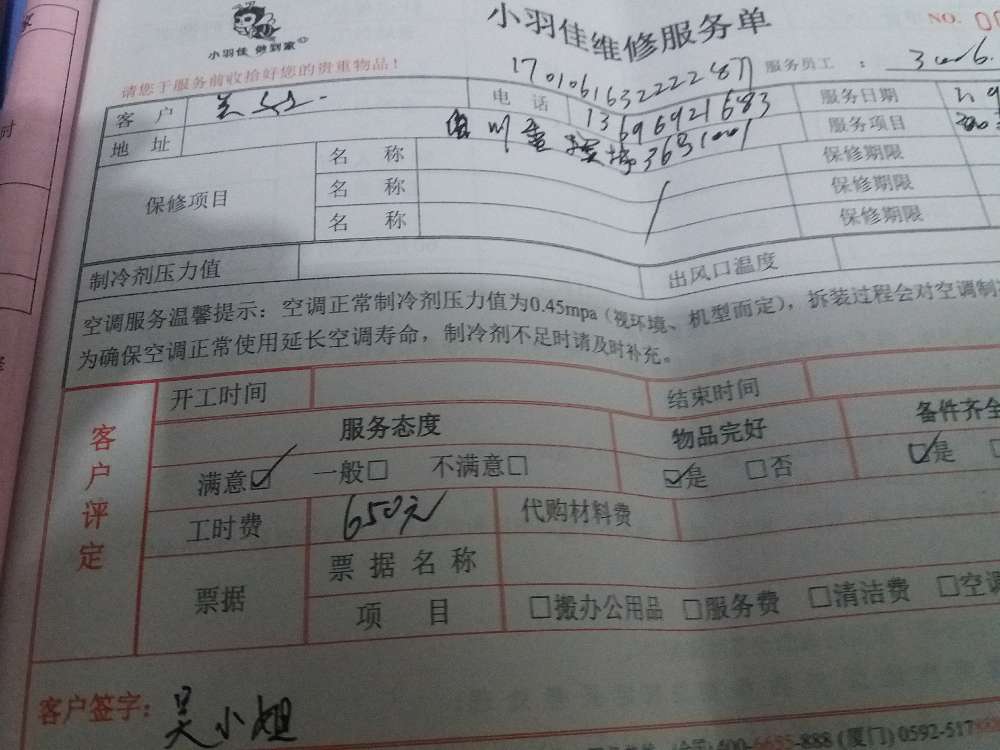 小羽佳 做到家
小羽佳维修服务单
NO.
请您于服务前收拾好您的贵重物品！
服务员工：
客 户 电 话 13696921683 服务日期
地 址 服务项目
保修项目 名 称 保修期限
名 称 保修期限
名 称 保修期限
制冷剂压力值 出风口温度
空调服务温馨提示：空调正常制冷剂压力值为0.45mpa（视环境、机型而定），拆装过程会对空调制
为确保空调正常使用延长空调寿命，制冷剂不足时请及时补充。
客户评定
开工时间 结束时间
服务态度 物品完好 备件齐全
满意☑ 一般□ 不满意□ ☑是 □否 ☑是
工时费 650元 代购材料费
票据 票 据 名 称
项 目 □搬办公用品 □服务费 □清洁费 □空调
客户签字： 吴小姐
-888 (厦门) 0592-517